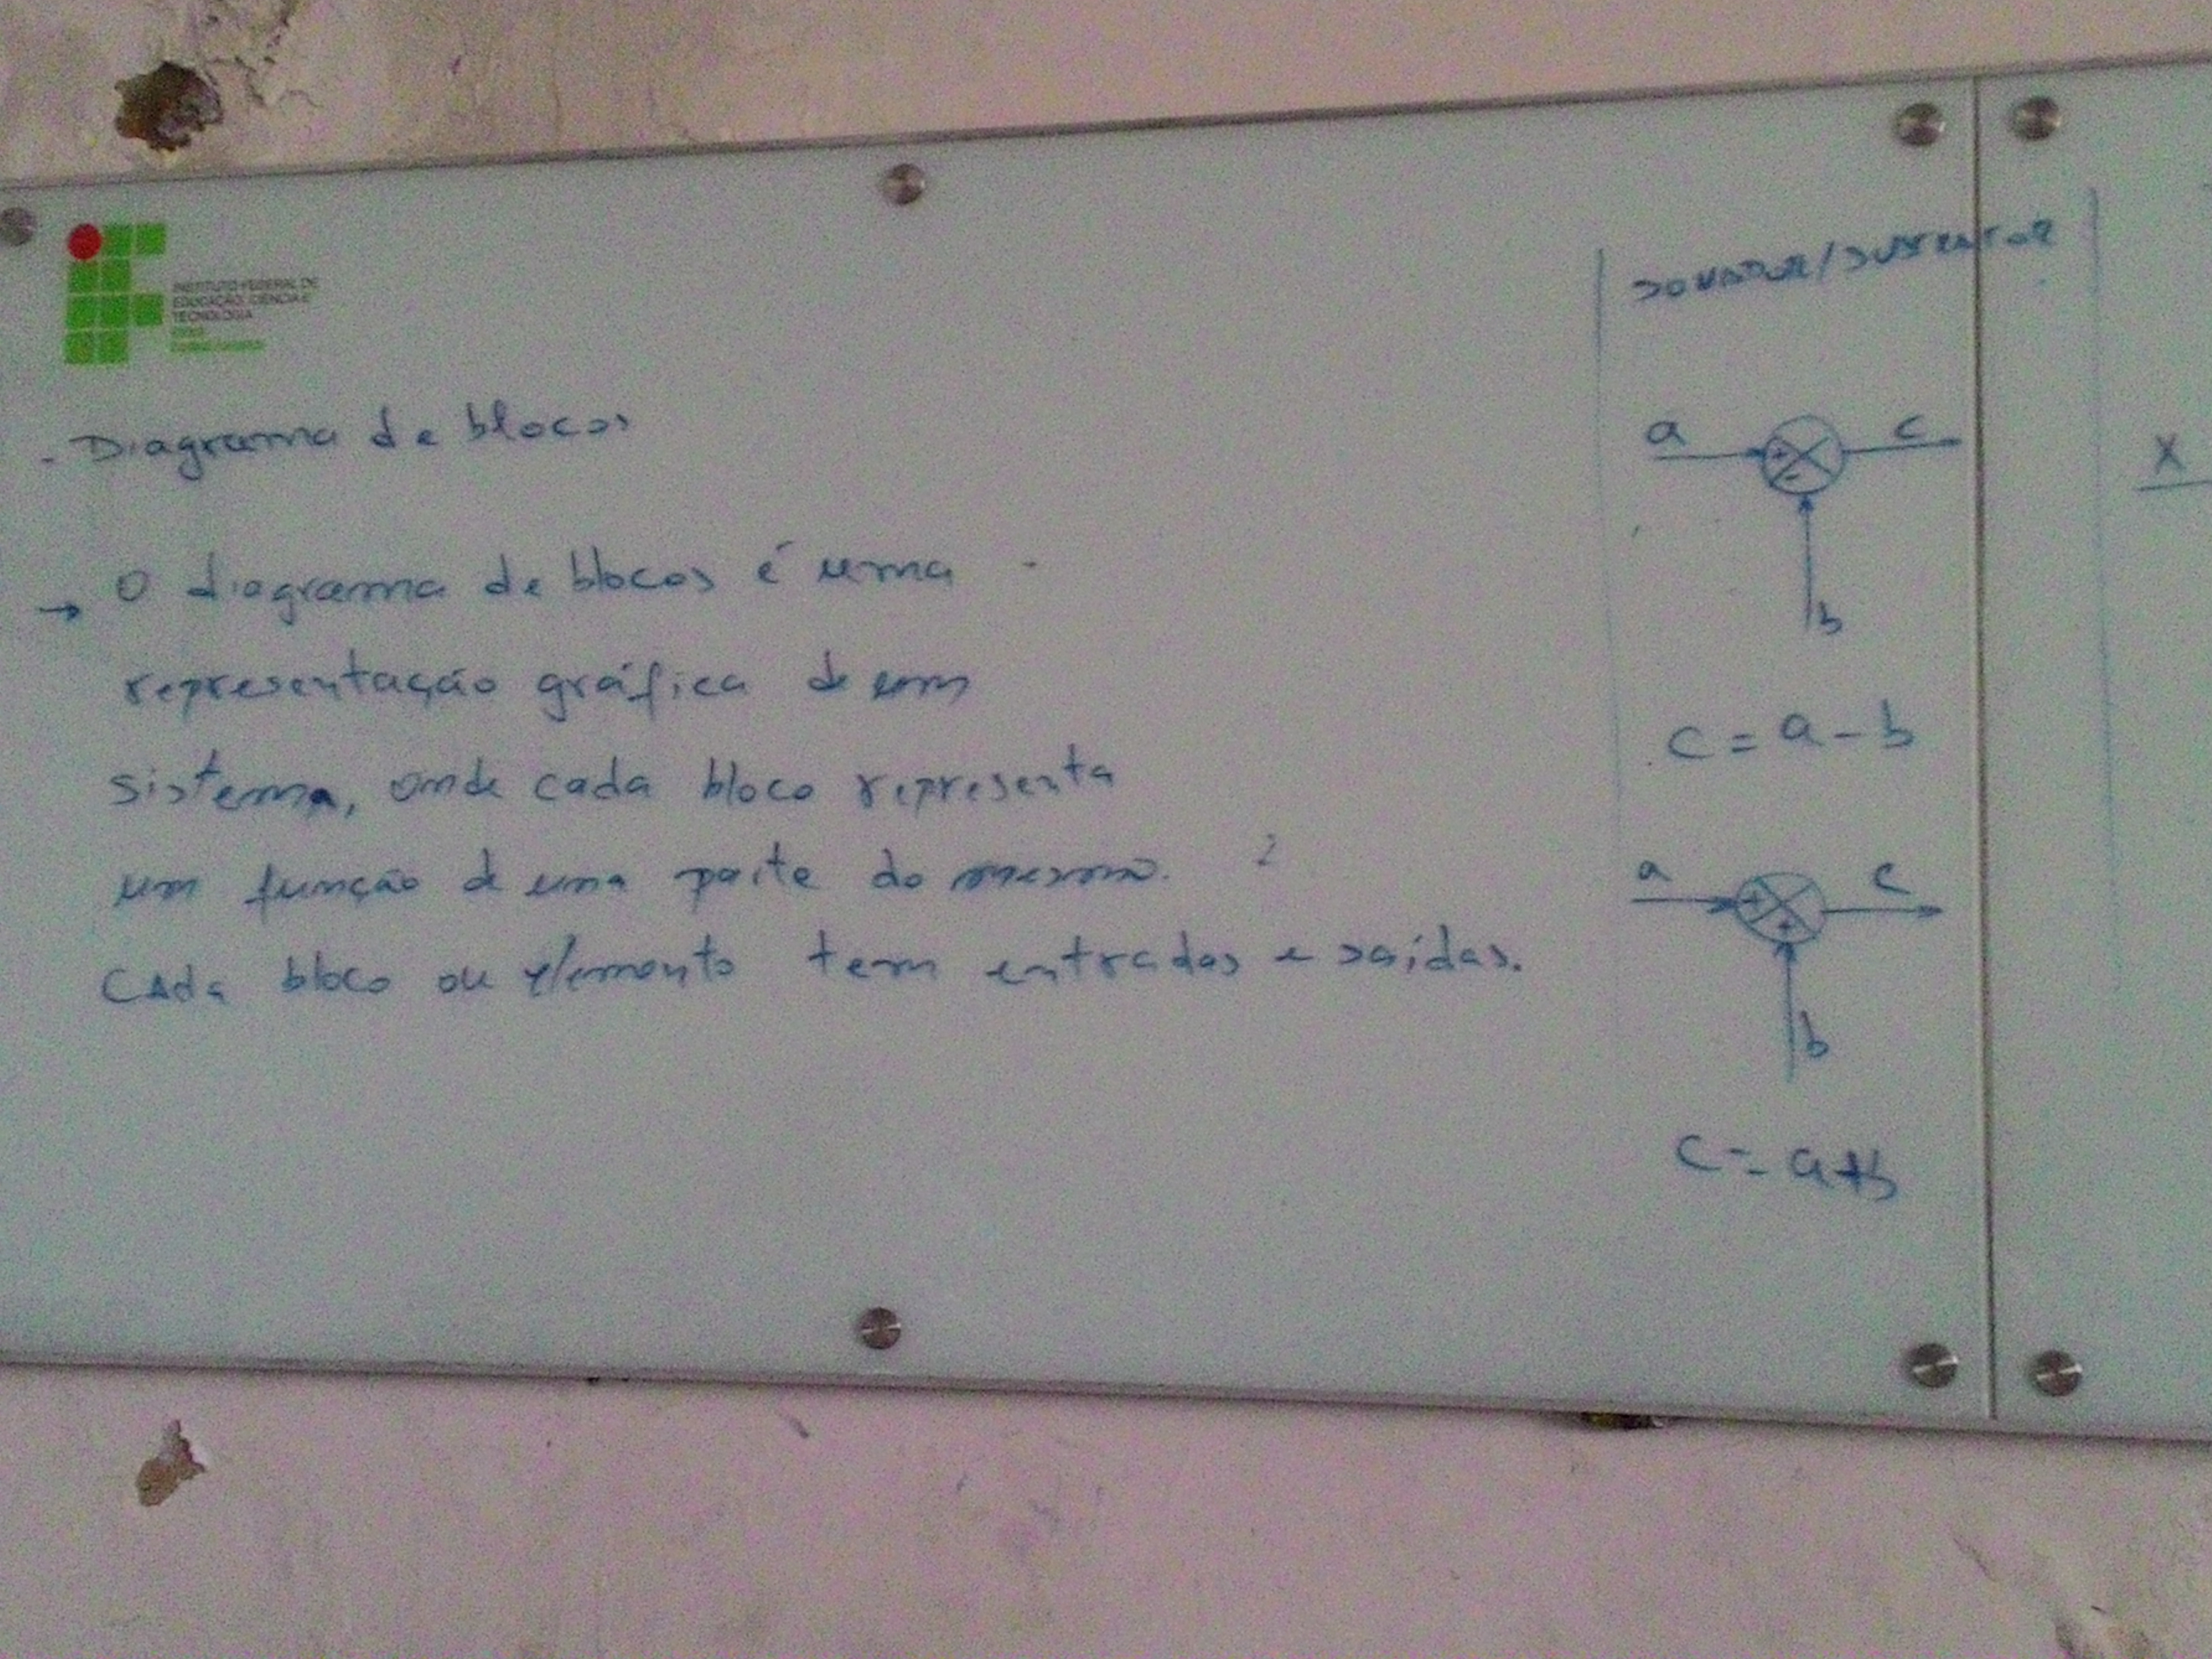 INSTITUTO FEDERAL DE
EDUCAÇÃO, CIÊNCIA E
TECNOLOGIA
- Diagrama de blocos
→ O diagrama de blocos é uma
representação gráfica de um
sistema, onde cada bloco representa
um função de uma parte do mesmo.
Cada bloco ou elemento tem entradas e saídas.
SOMADOR/SUBTRATOR
a + - c
b
c = a - b
a + + c
b
c = a+b
X